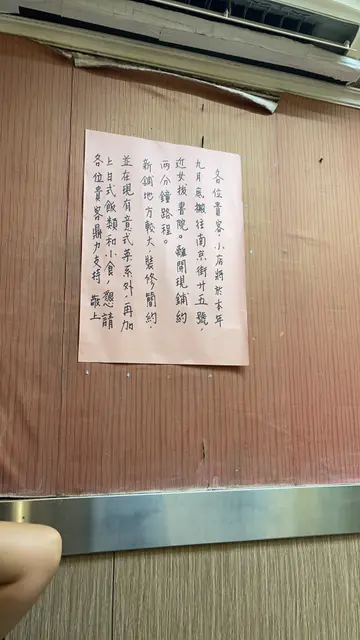 各位貴客，小店將於本年
九月底搬往南京街廿五號，
近女拔書院。離開現鋪約
兩分鐘路程。
新鋪地方較大，裝修簡約，
並在現有意式菜系外，再加
上日式飯類和小食，懇請
各位貴客鼎力支持 敬上